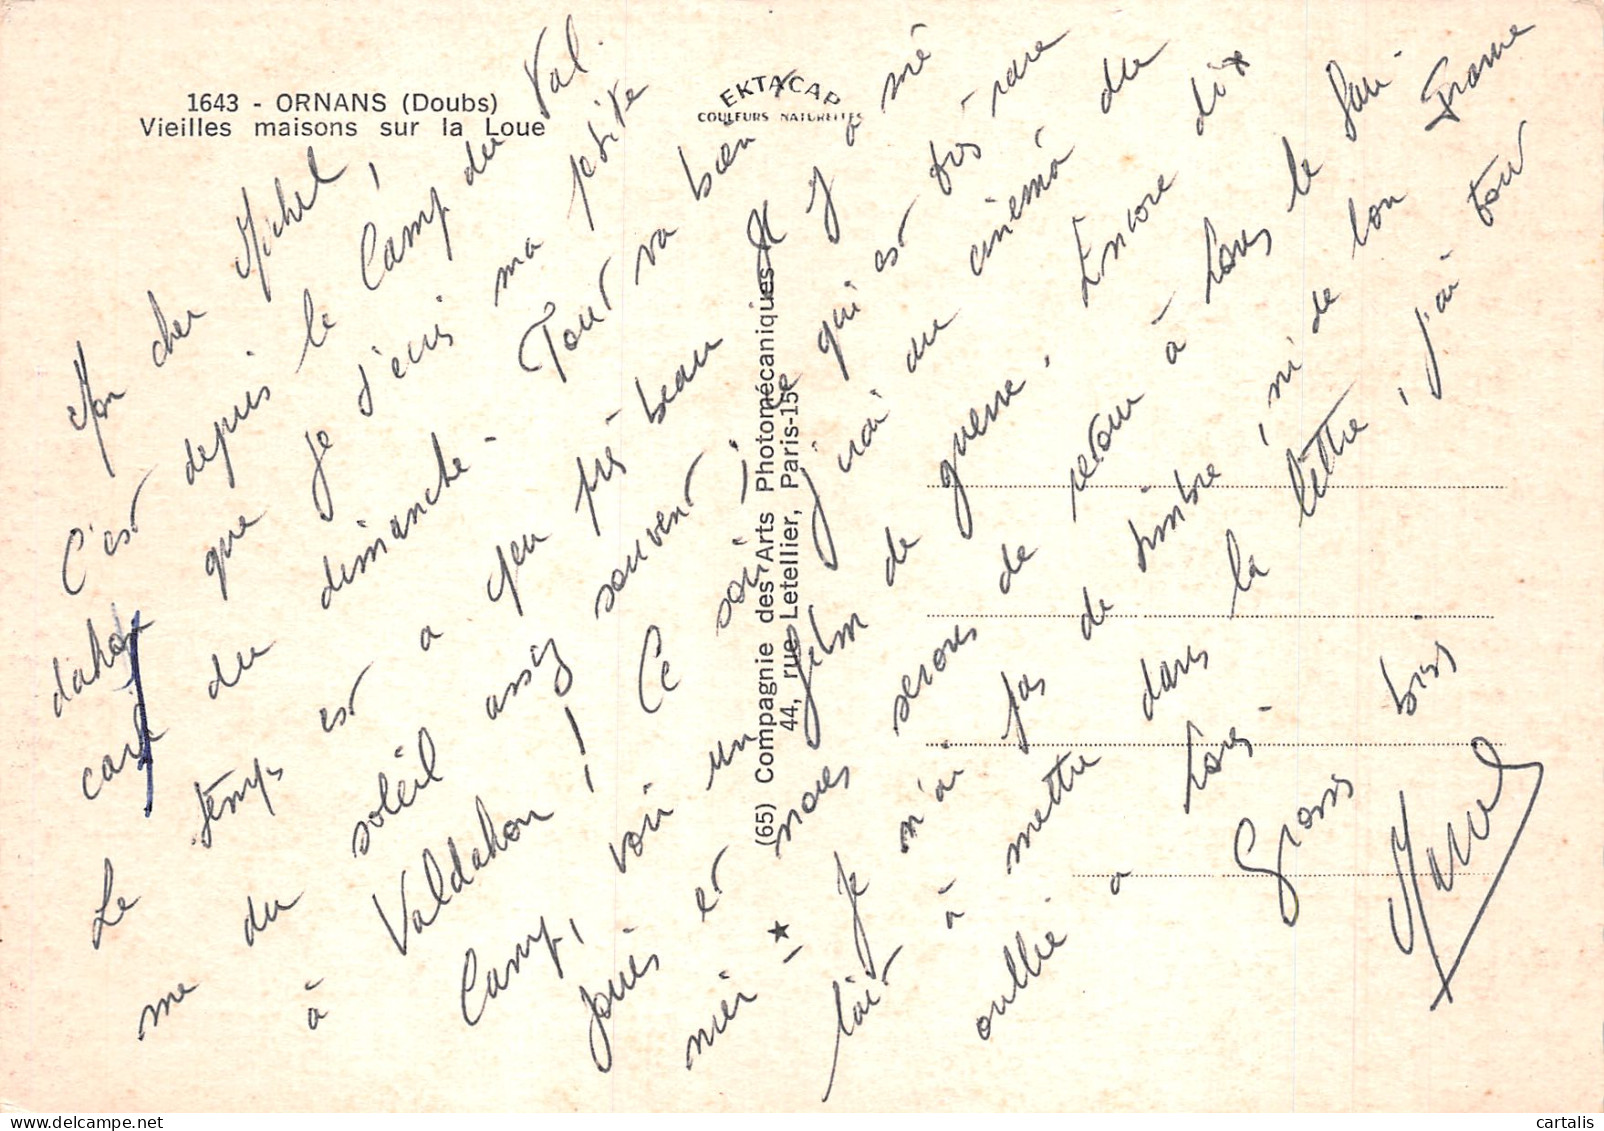 1643 - ORNANS (Doubs)
Vieilles maisons sur la Loue
EKTACAP
COULEURS NATURELLES
(65) Compagnie des Arts Photomécaniques
44, rue Letellier, Paris-15e
Mon cher Michel,
C'est depuis le Camp du Val
dahon que je t'écris ma petite
carte du dimanche. Tout va bien
Le temps est à peu près beau Il y a mê
me du soleil assez souvent, ce qui est très rare
à Valdahon ! Ce soir j'irai au cinéma du
Camp, voir un film de guerre. Encore dix
jours et nous serons de retour à
mier - Je n'ai pas de timbre, ni de bon
à mettre dans la lettre, j'ai tout
oublié à
Grosses bises